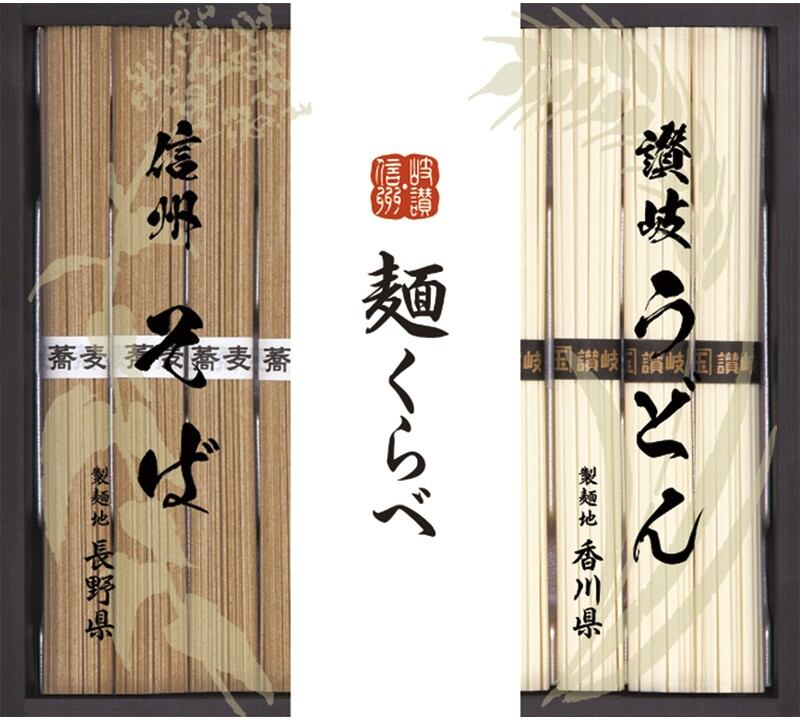 讃岐うどん
製麺地 香川県
岐讃
信州
麺くらべ
信州そば
製麺地 長野県
蕎麦 蕎麦 蕎麦 蕎
岐 国 讃岐 国 讃岐 国 讃岐